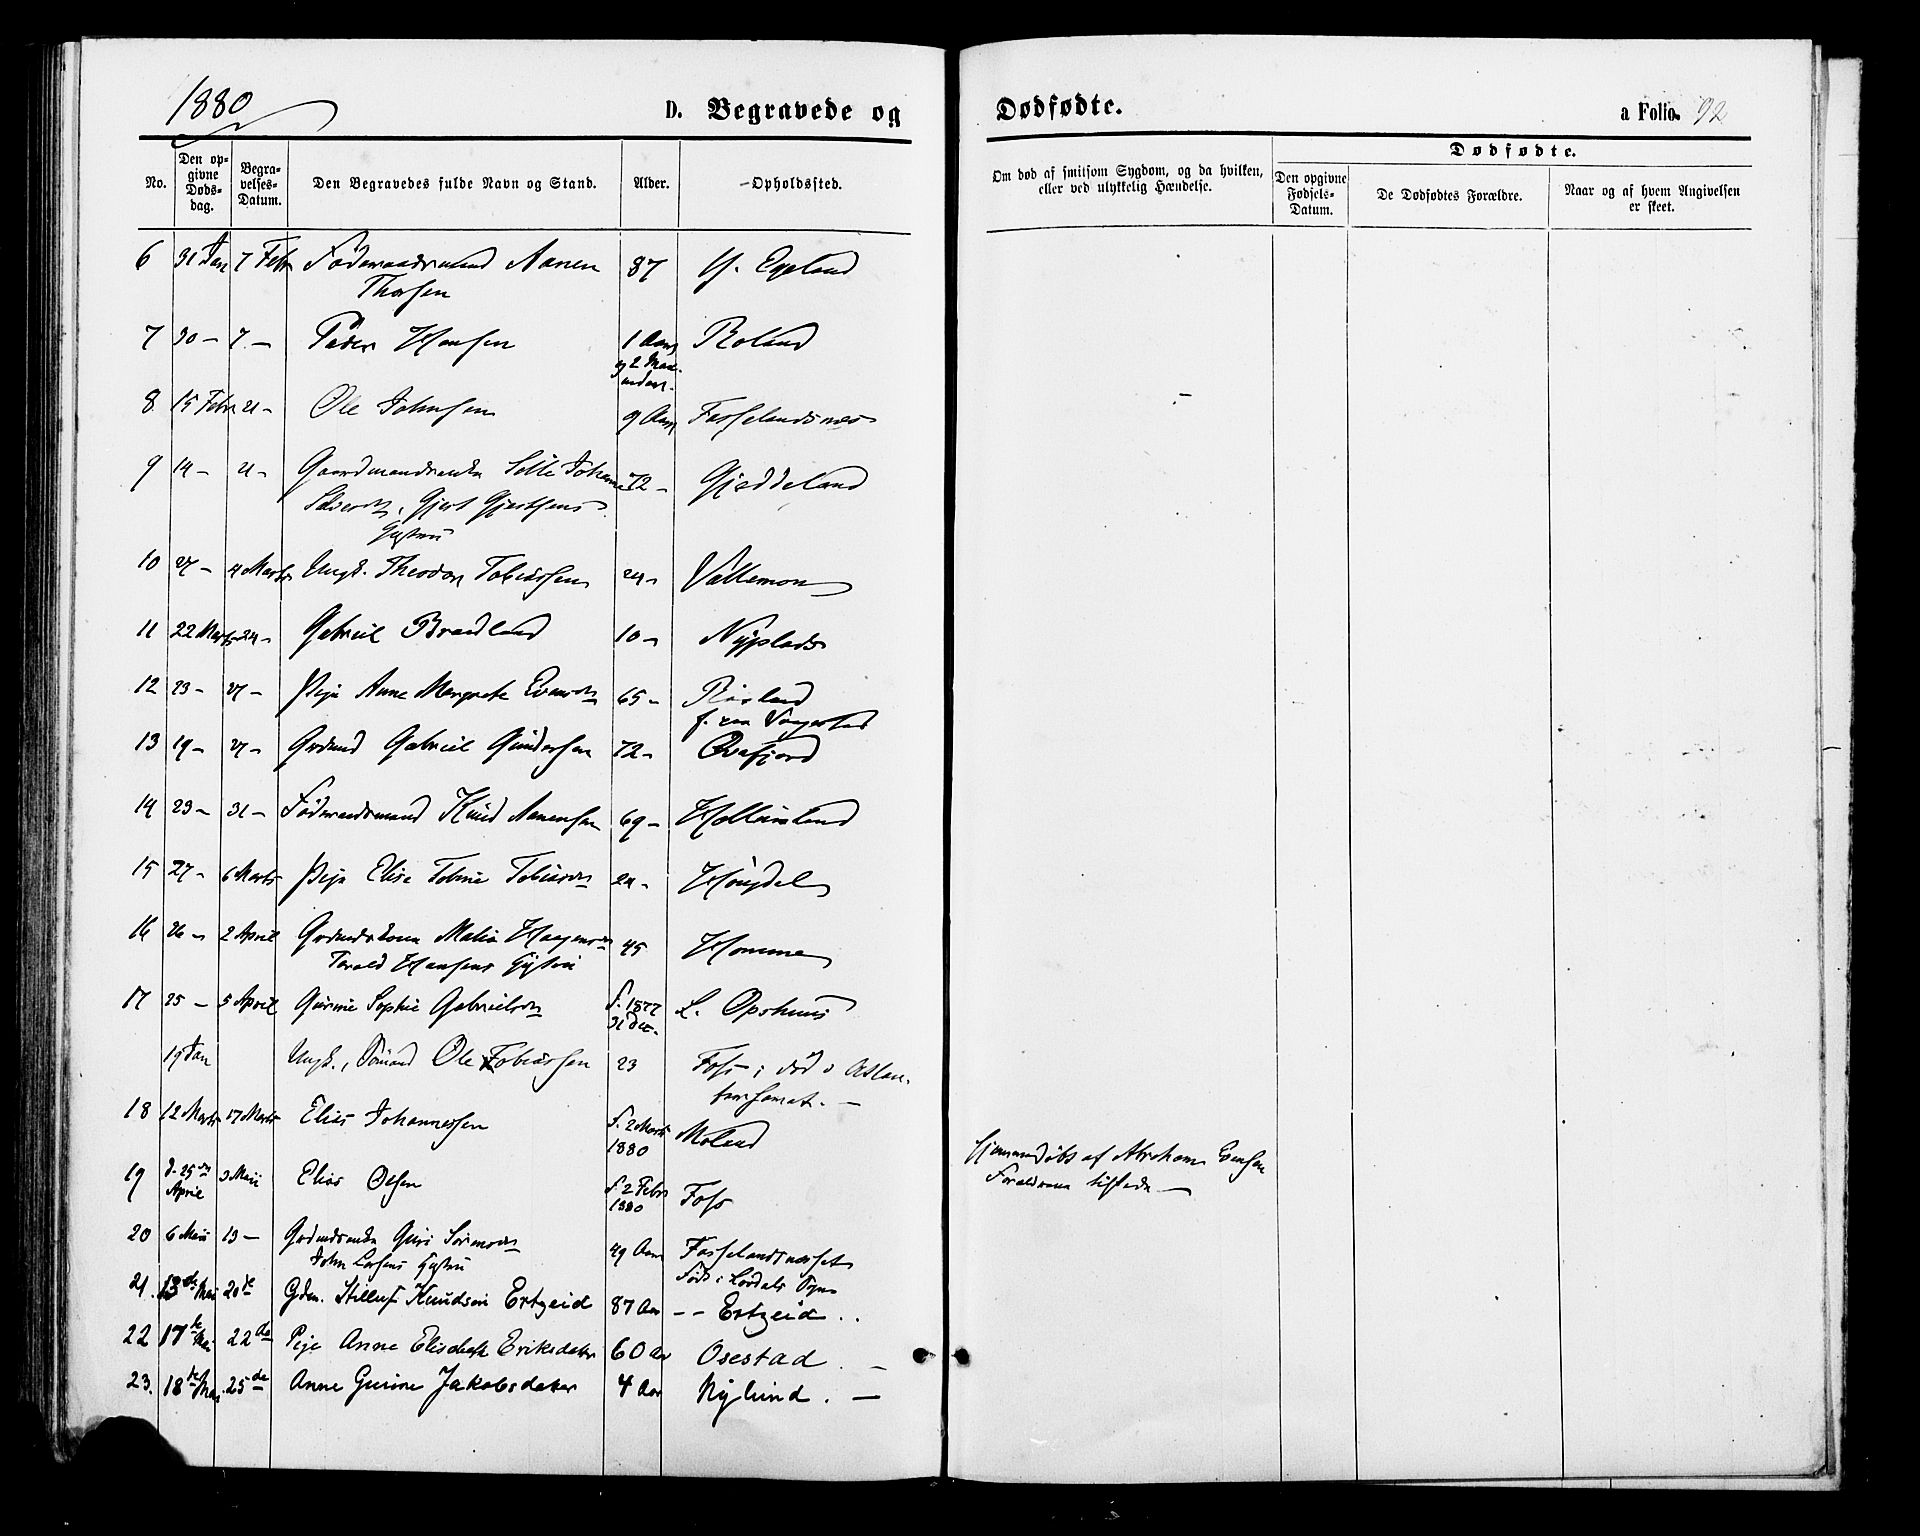 1880
D. Begravede og Dødfødte.
a Folio. 92
No.
Den opgivne Dødsdag.
Begravelses-Datum.
Den Begravedes fulde Navn og Stand.
Alder.
Opholdssted.
Om død af smitsom Sygdom, og da hvilken, eller ved ulykkelig Hændelse.
Dødfødte.
Den opgivne Fødsels-Datum.
De Dødfødtes Forældre.
Naar og af hvem Angivelsen er skeet.
6 31 Jan 7 Febr Føderaadsmand Aanen 87 Egeland
Thorsen
7 30 - 7 - Peder Hansen 1 Aar Roland
og 2 Maaneder.
8 15 Febr 21 - Ole Johnsen 9 Aar Fosselandsnes
9 14 - 21 - Gaardmandsenke Johanne 72 - Gjeddeland
Gjert Gjertsens
10 27 - 4 Marts Ungk. Theodor Tobiassen 24 - Vallemoen
11 22 Marts 24 - Gabriel Brædland 10 - Nyplads
12 23 - 27 - Pige Anne Margrete 65 - Røsland
f. paa
13 19 - 27 - Grdmd Gabriel Gundersen 72 - Qvafjord
14 23 - 31 - Føderaadsmand Knud Aanensen 69 -
15 27 - 6 Marts Pige Elise Tobine 24 - Høugdal
16 26 - 2 April Malia 45 Homme
Hansens
17 25 - 5 April Gurine Sophie Gabrielsdtr f. 1877 L. Opshuus
31 Dec.
19 Jan Ungk., Sømand Ole Tobiassen 23 Foss; død i Atlan-
terhavet. -
18 12 Marts 17 Marts Elias Johannessen f. 2 Marts Moland
1880
Hjemmedøbt af Abraham Evensen
Forældrene tilstede -
19 d. 25de 3 Maii Elias Olsen f. 2 Febr Foss
April 1880
20 6 Maii 13 - Guri Sørensdtr 49 Aar Fosselandsneset
John Larsens
21. 13de Mai 20de Gdm. Knudsen Ertzeid 87 Aar - - Ertzeid . .
22 17de Mai 22de Pige Anne Elisabeth Eriksdater 60 Aar Osestad . -
23. 18de Mai 25de Anne Gurine Jakobsdater 4 Aar Nylund . -